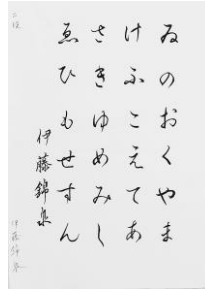 ゐのおくやま
けふこえてあ
さきゆめみし
ゑひもせすん
伊藤錦泉